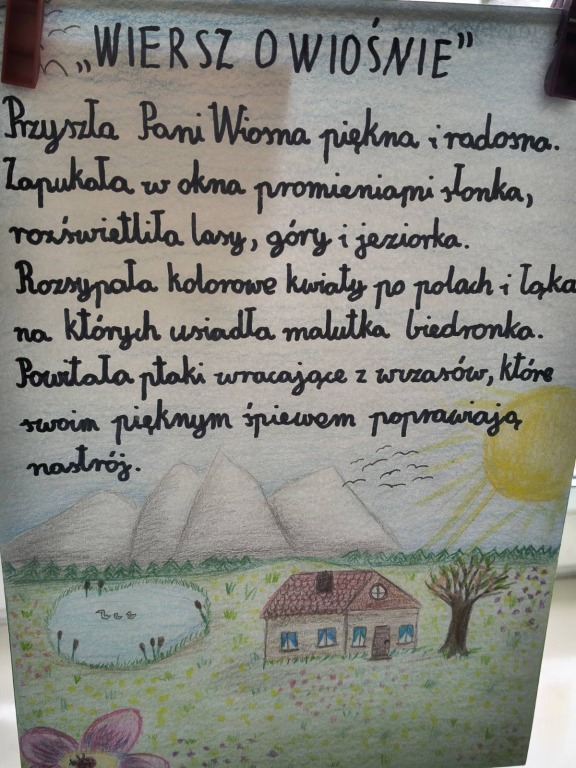 „WIERSZ O WIOŚNIE”
Przyszła Pani Wiosna piękna i radosna.
Zapukała w okna promieniami słonka,
rozświetliła lasy, góry i jeziorka.
Rozsypała kolorowe kwiaty po polach i łąka
na których usiadła malutka biedronka.
Powitała ptaki wracające z wczasów, które
swoim pięknym śpiewem poprawiają
nastrój.